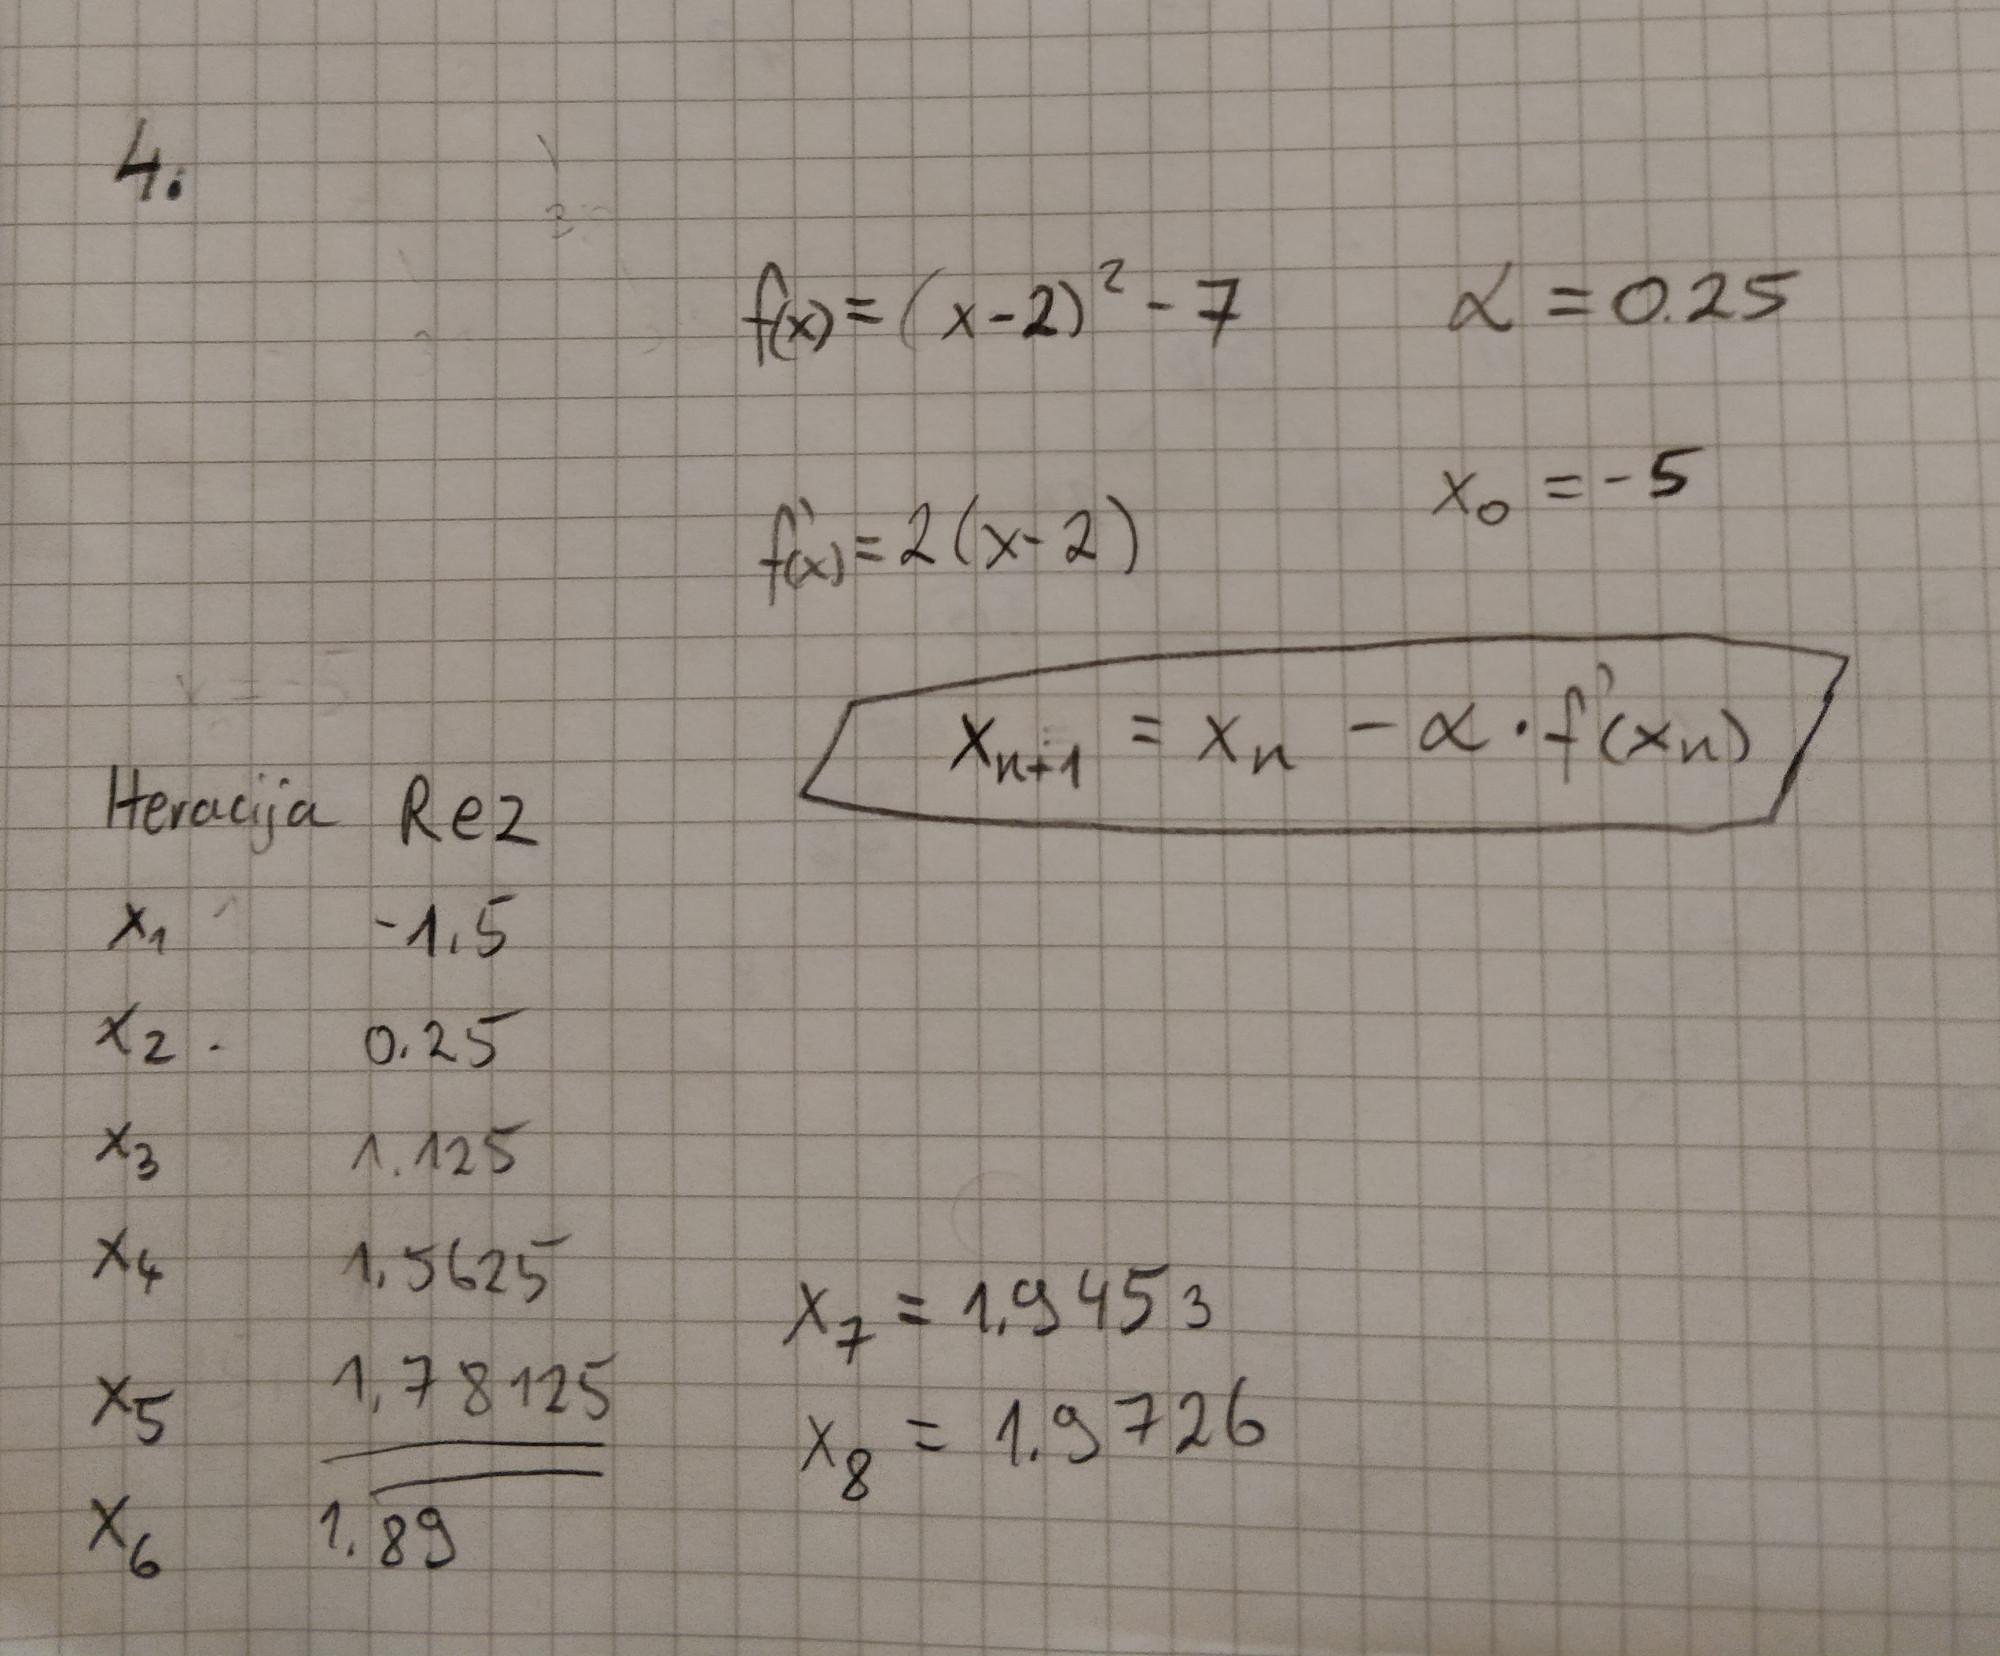 4.
f(x) = (x-2)² - 7    α = 0.25
x₀ = -5
f'(x) = 2(x-2)
xₙ₊₁ = xₙ - α · f'(xₙ)
Iteracija Rez
x₁ -1.5
x₂ 0.25
x₃ 1.125
x₄ 1.5625
x₅ 1.78125
x₆ 1.89
x₇ = 1.9453
x₈ = 1.9726